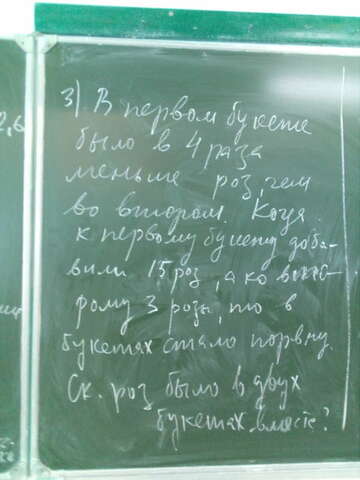 3) В первом букете
было в 4 раза
меньше роз, чем
во втором. Когда
к первому букету доба-
вили 15 роз, а ко вто-
рому 3 розы, то в
букетах стало поровну.
Ск. роз было в двух
букетах вместе?